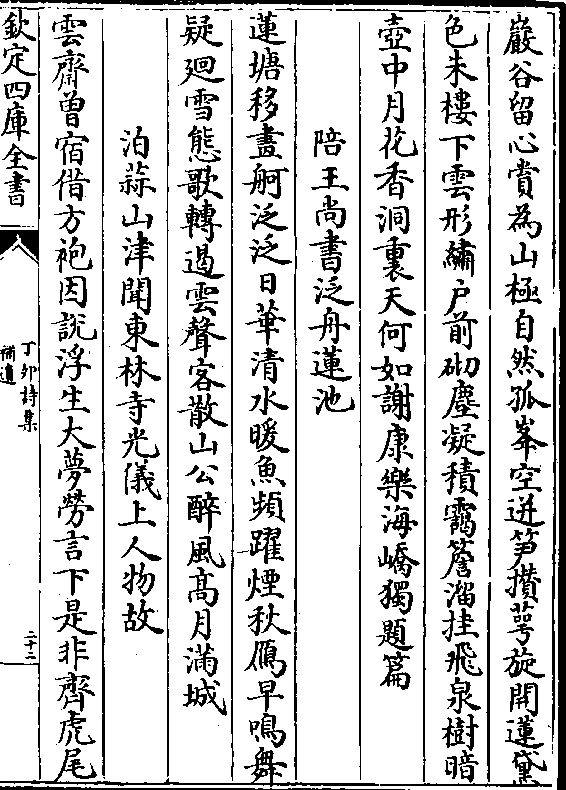 巖谷留心賞為山極自然孤峯空迸笋攢萼旋開蓮黛
色朱樓下雲形繡户前砌塵凝積靄簷溜挂飛泉樹暗
壺中月花香洞裏天何如謝康樂海嶠獨題篇
陪王尚書泛舟蓮池
蓮塘移畫舸泛泛日華清水暖魚頻躍煙秋鴈早鳴舞
疑廻雪態歌轉遏雲聲客散山公醉風髙月滿城
泊蒜山津聞東林寺光儀上人物故
雲齋曽宿借方袍因說浮生大夢勞言下是非齊虎尾
欽定四庫全書
丁卯詩集
補遺
二十二